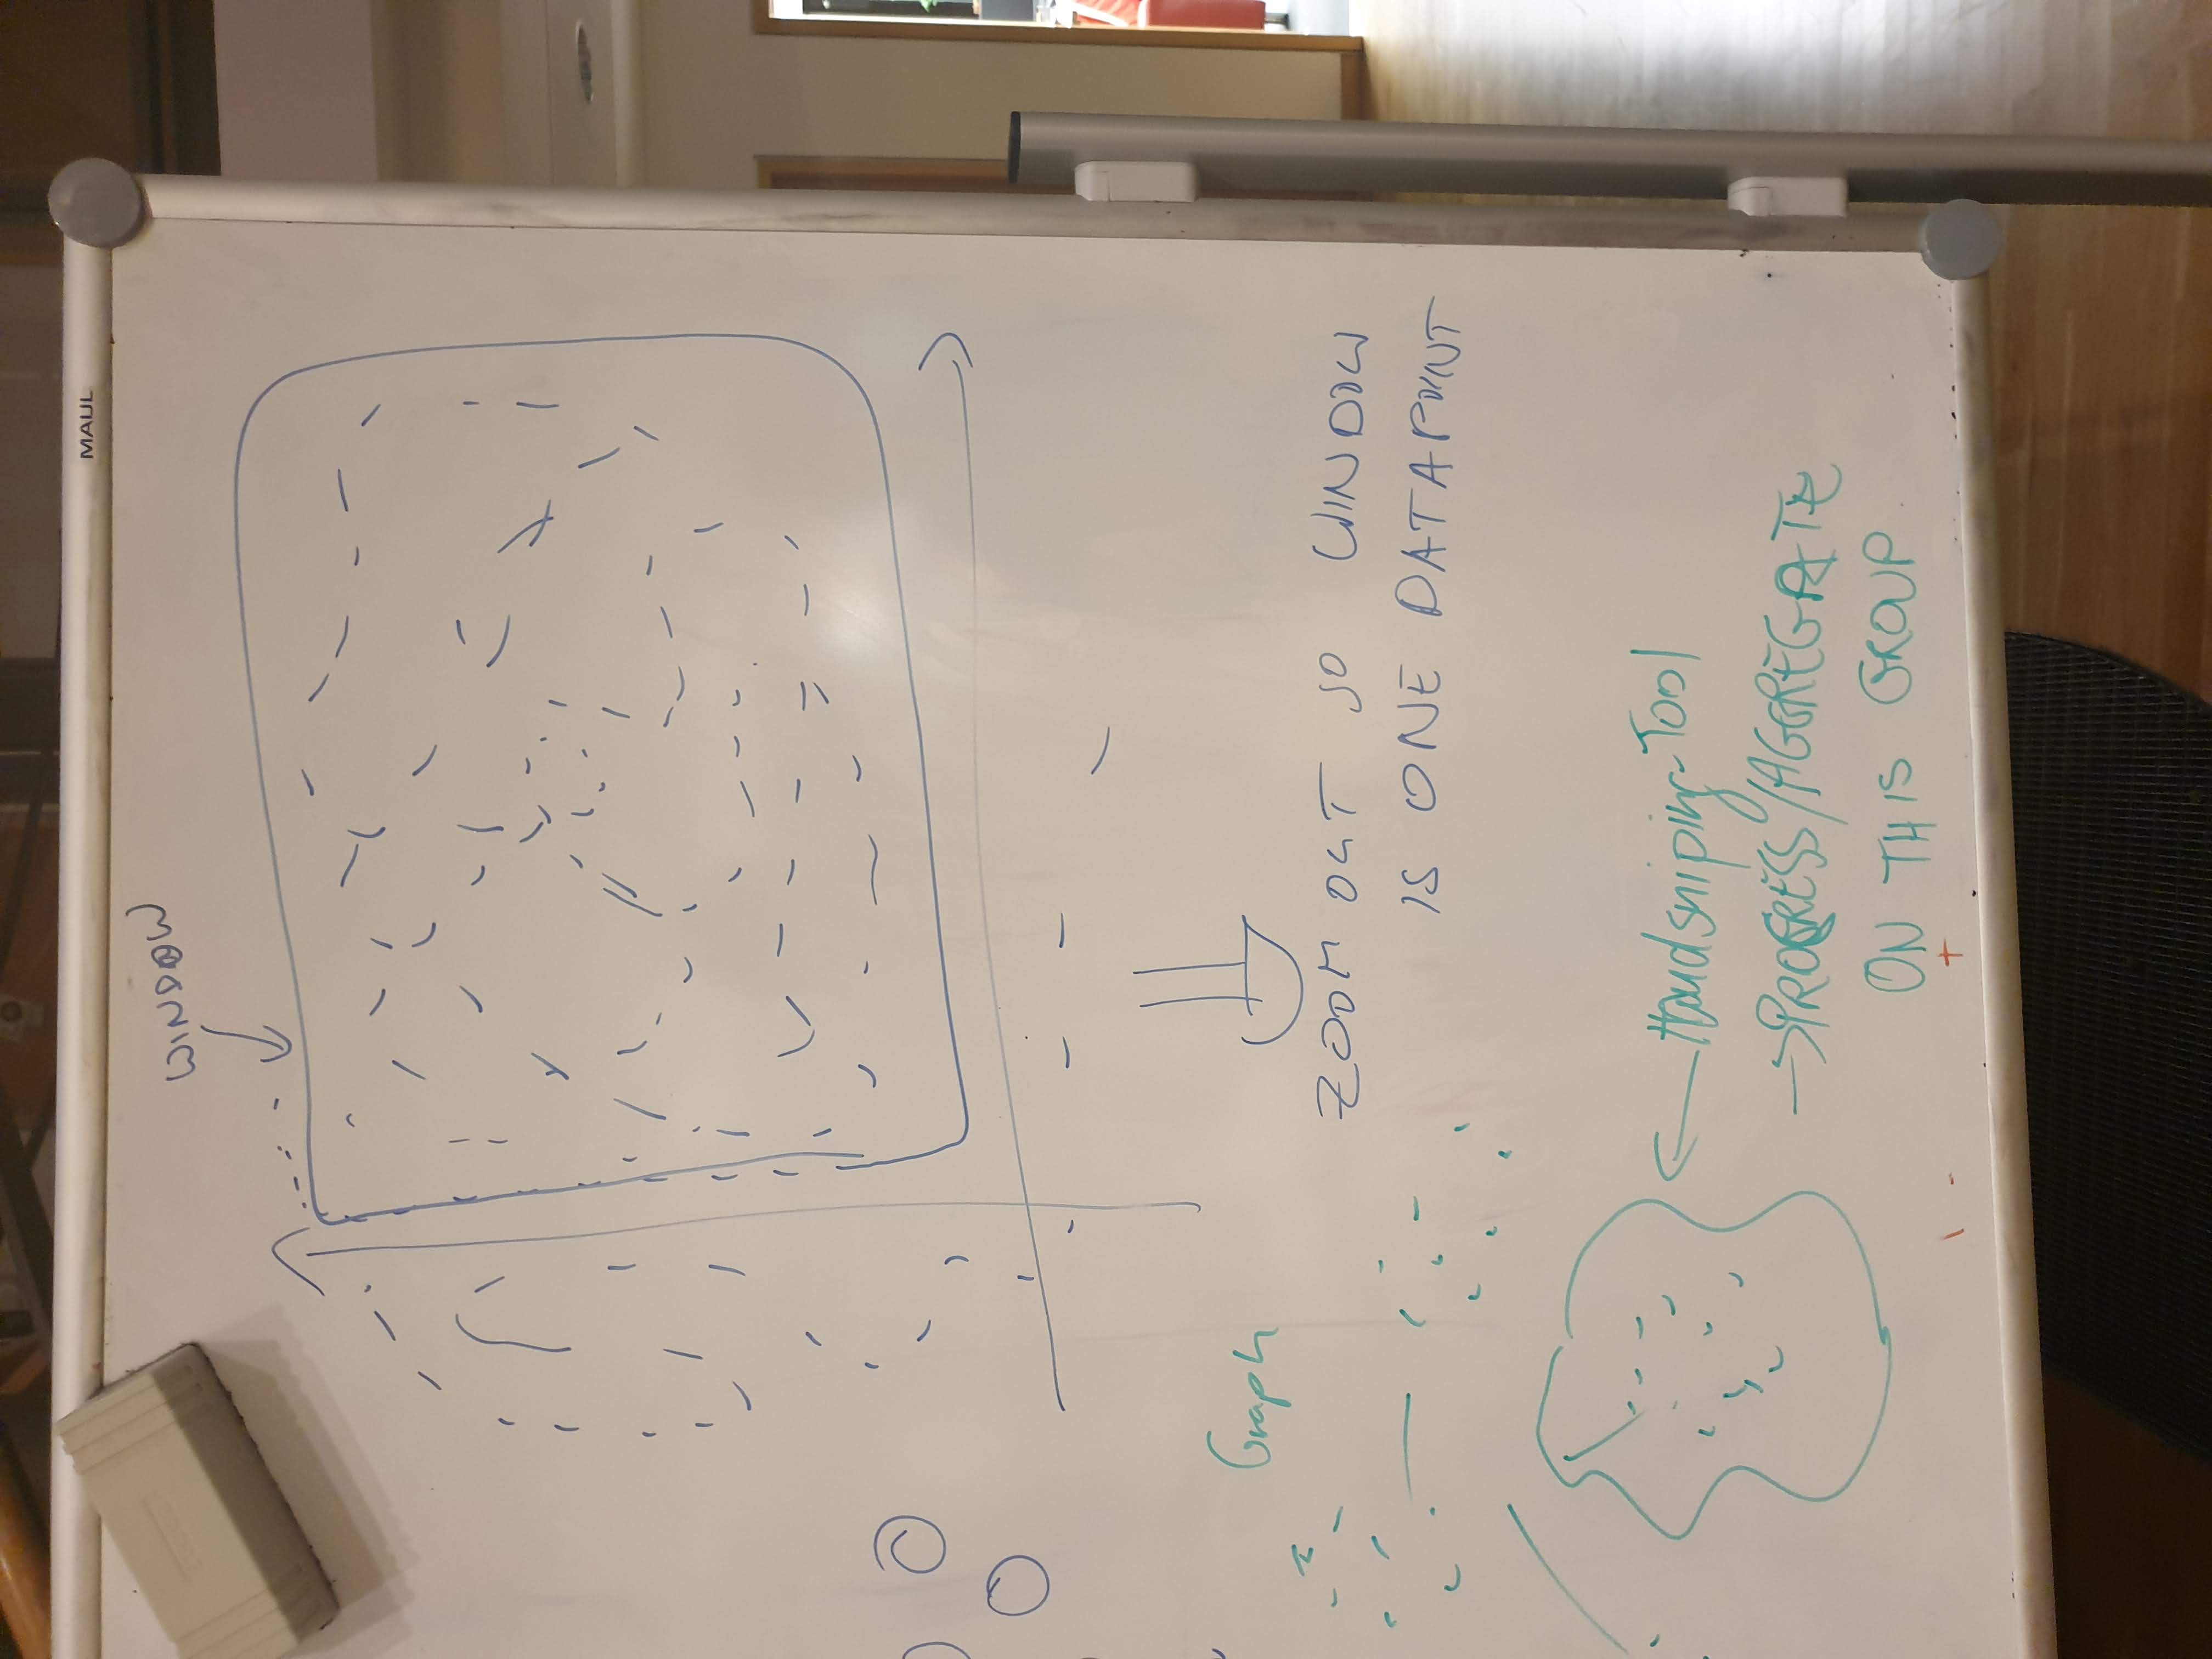 MAUL
WINDOW
ZOOM OUT SO WINDOW
IS ONE DATAPOINT
Graph
Handsniping-Tool
PROGRESS/AGGREGATE
ON THIS GROUP